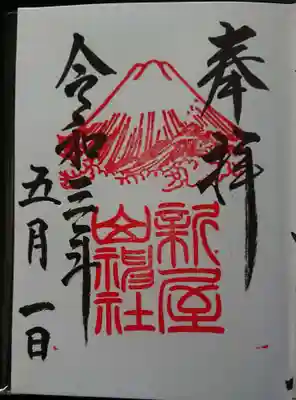 奉拝
新屋
山神社
令和元年
五月一日